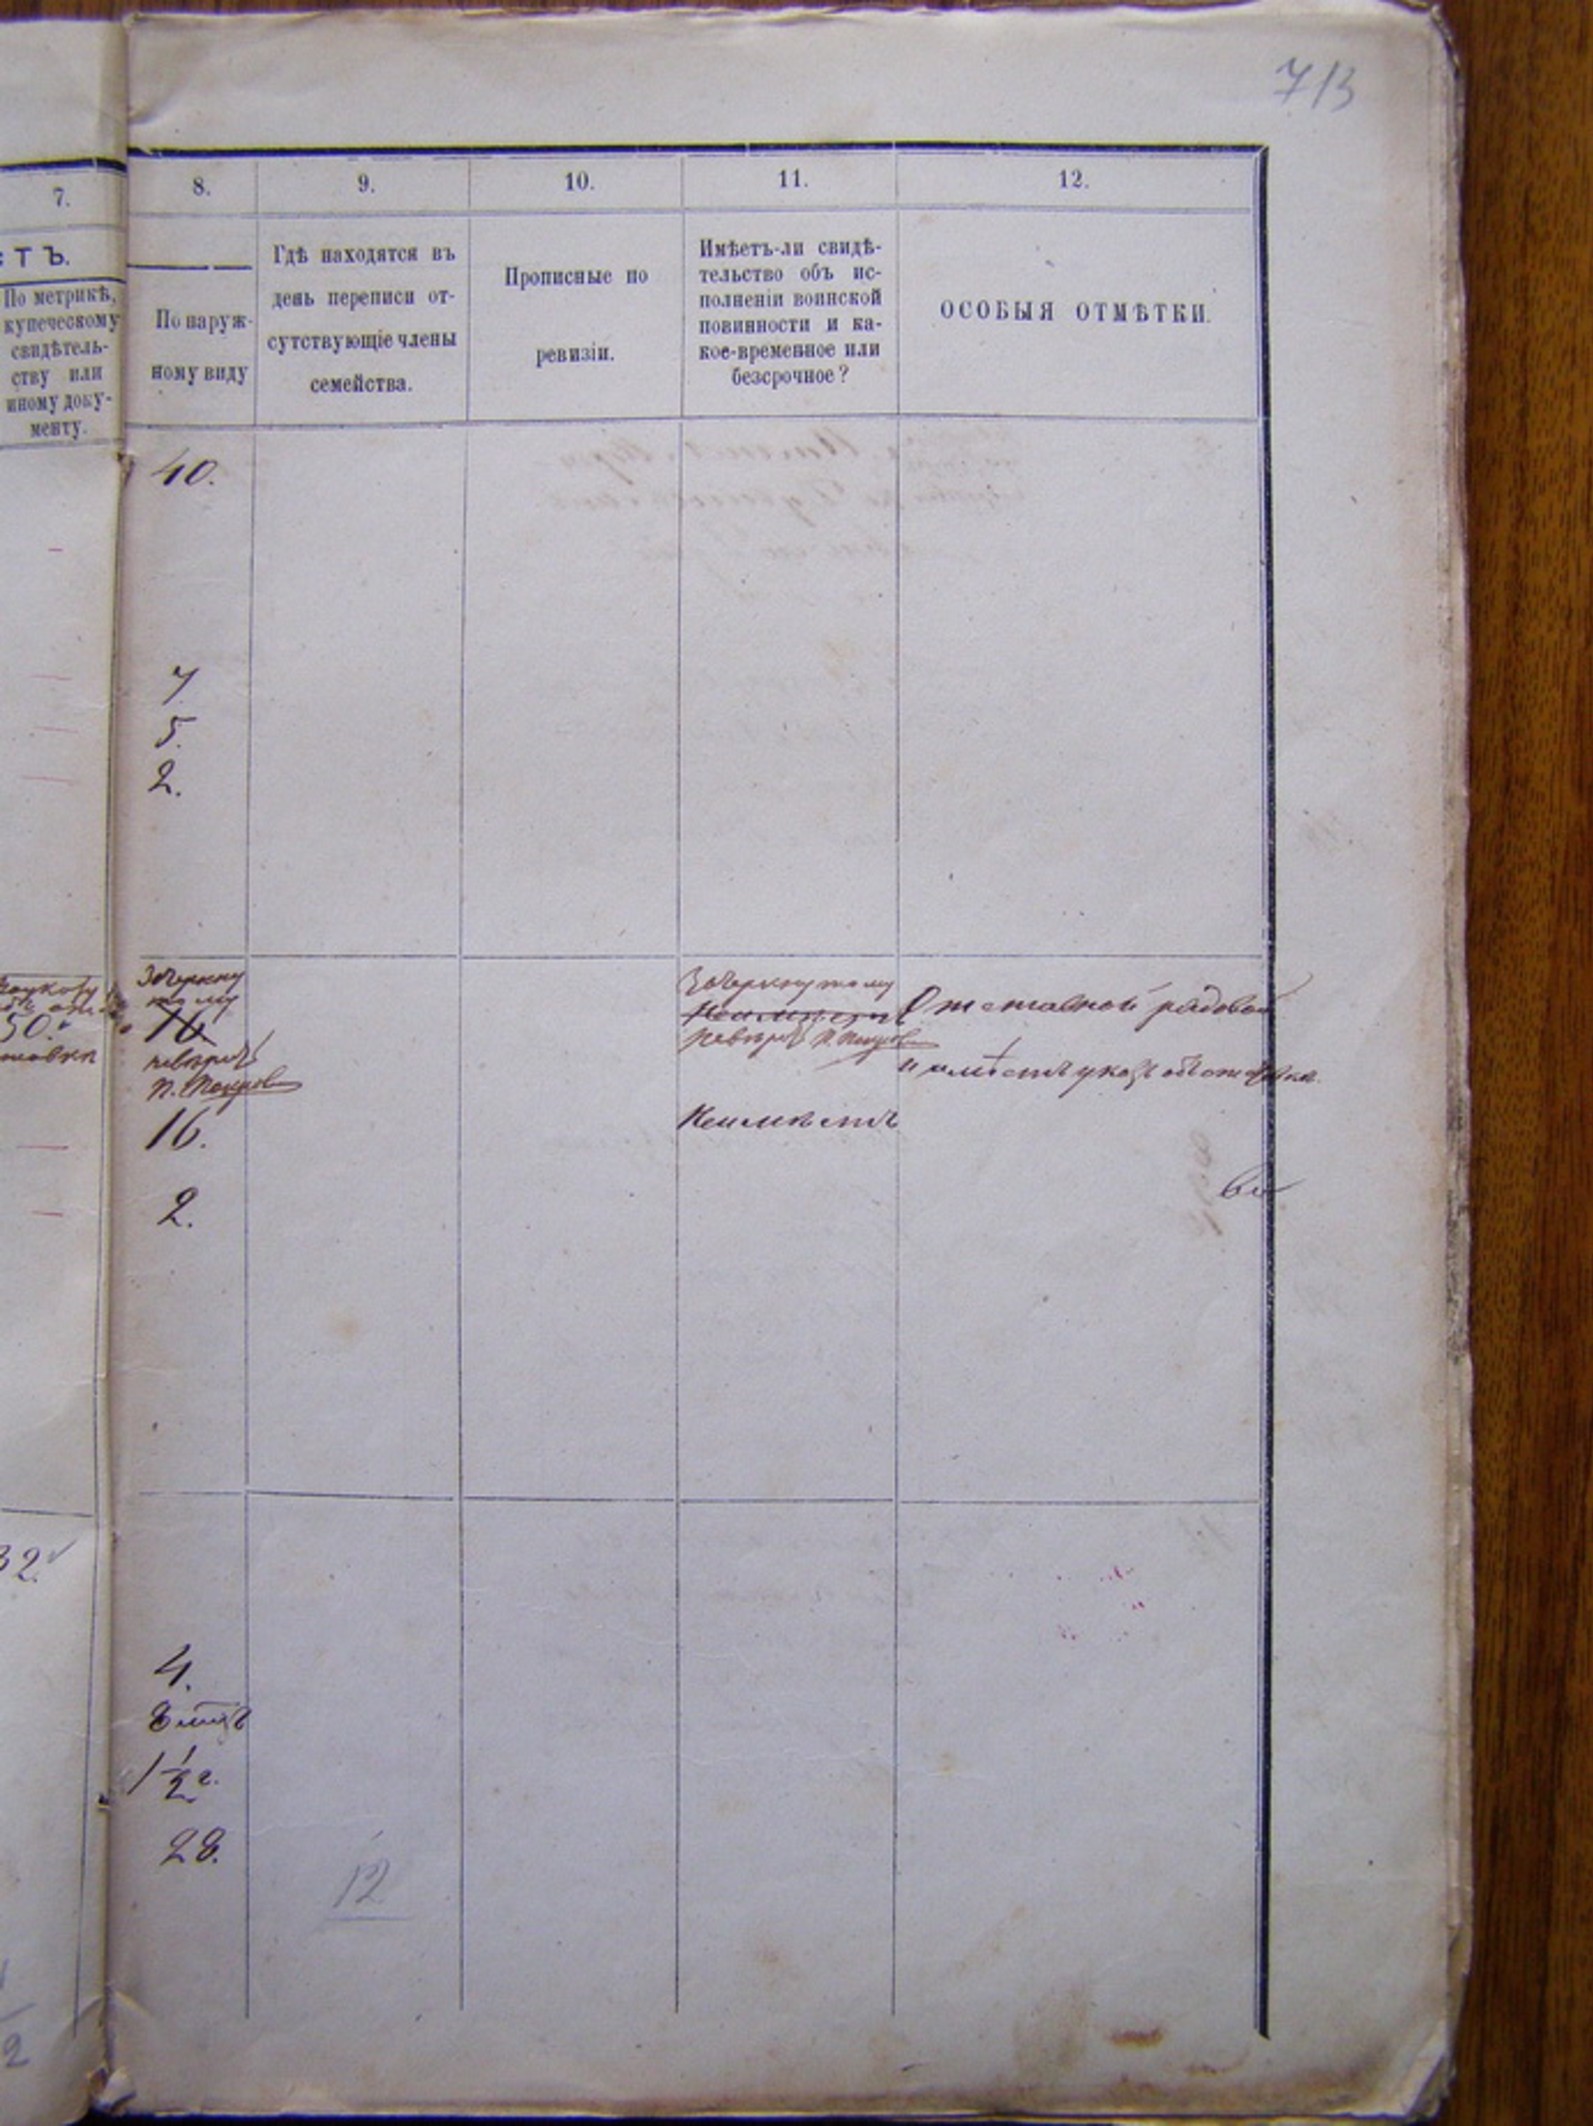 713
7.
8.
9.
10.
11.
12.
СТЪ.
По метрикѣ,
купеческому
свидѣтель-
ству или
иному доку-
менту.
По наруж-
ному виду
Гдѣ находятся въ
день переписи от-
сутствующіе члены
семейства.
Прописные по
ревизіи.
Имѣетъ-ли свидѣ-
тельство объ ис-
полненіи воинской
повинности и ка-
кое-временное или
безсрочное?
ОСОБЫЯ ОТМѢТКИ.
40.
7.
5.
2.
Зачеркну
тому
50.
16
невѣрить
16.
2.
Зачеркнутому
Неимѣетъ
невѣрить
Неимѣетъ
Отставной рядовой
и имѣетъ указъ объ отставкѣ
32.
4.
8 мцъ
1 1/2 г.
28.
12
2